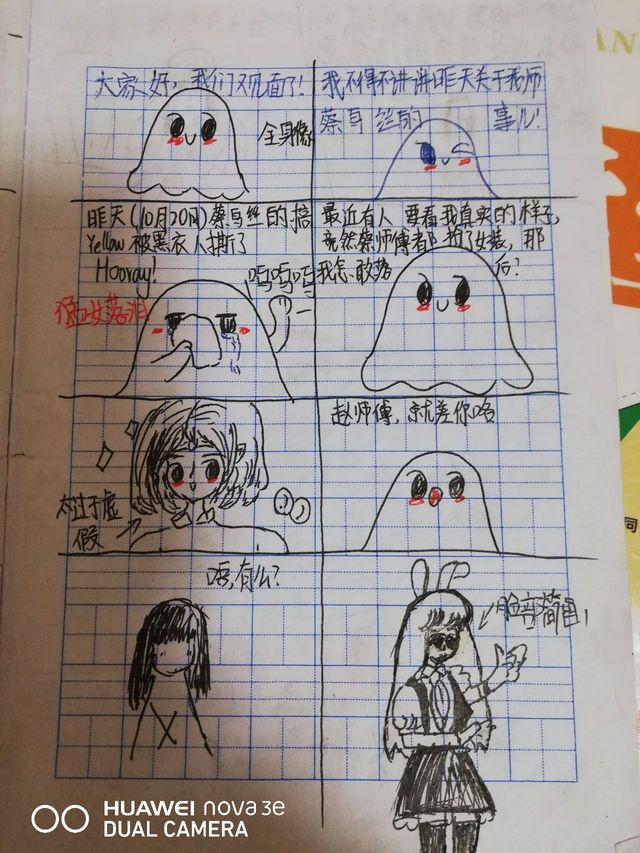 大家好,我们又见面了!
全身像
我不得不讲讲昨天关于我师
蔡乌丝的 事儿!
昨天(10月20日)蔡乌丝的搞
Yellow被黑衣人撕了
Hooray!
呜呜呜
落泪
最近有人要看我真实的样子,
竟然蔡师傅都拍了女装,那
我怎敢落后?
太过于虚
假
赵师傅,就差你咯
唔,有么?
脸
HUAWEI nova 3e
DUAL CAMERA
AN
同